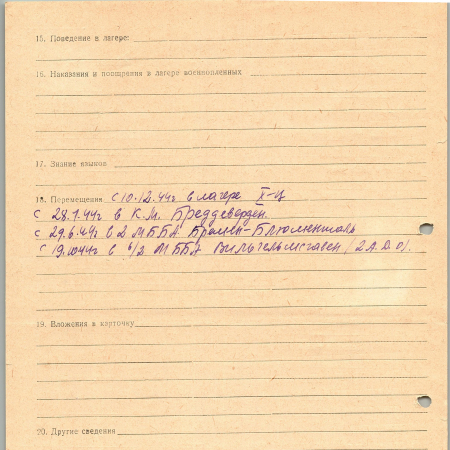 15. Поведение в лагере:
16. Наказания и поощрения в лагере военнопленных
17. Знание языков
18. Перемещения с 10.12.44г в лагере X-Ц
С 28.7.44г в К.М. Бреддеверден.
С 29.6.44г в 2 МББА Бремен-Блюменталь
С 19.10.44г в 6/2 МББА Вильгельмсгавен (2 А.Д.О).
19. Вложения в карточку
20. Другие сведения